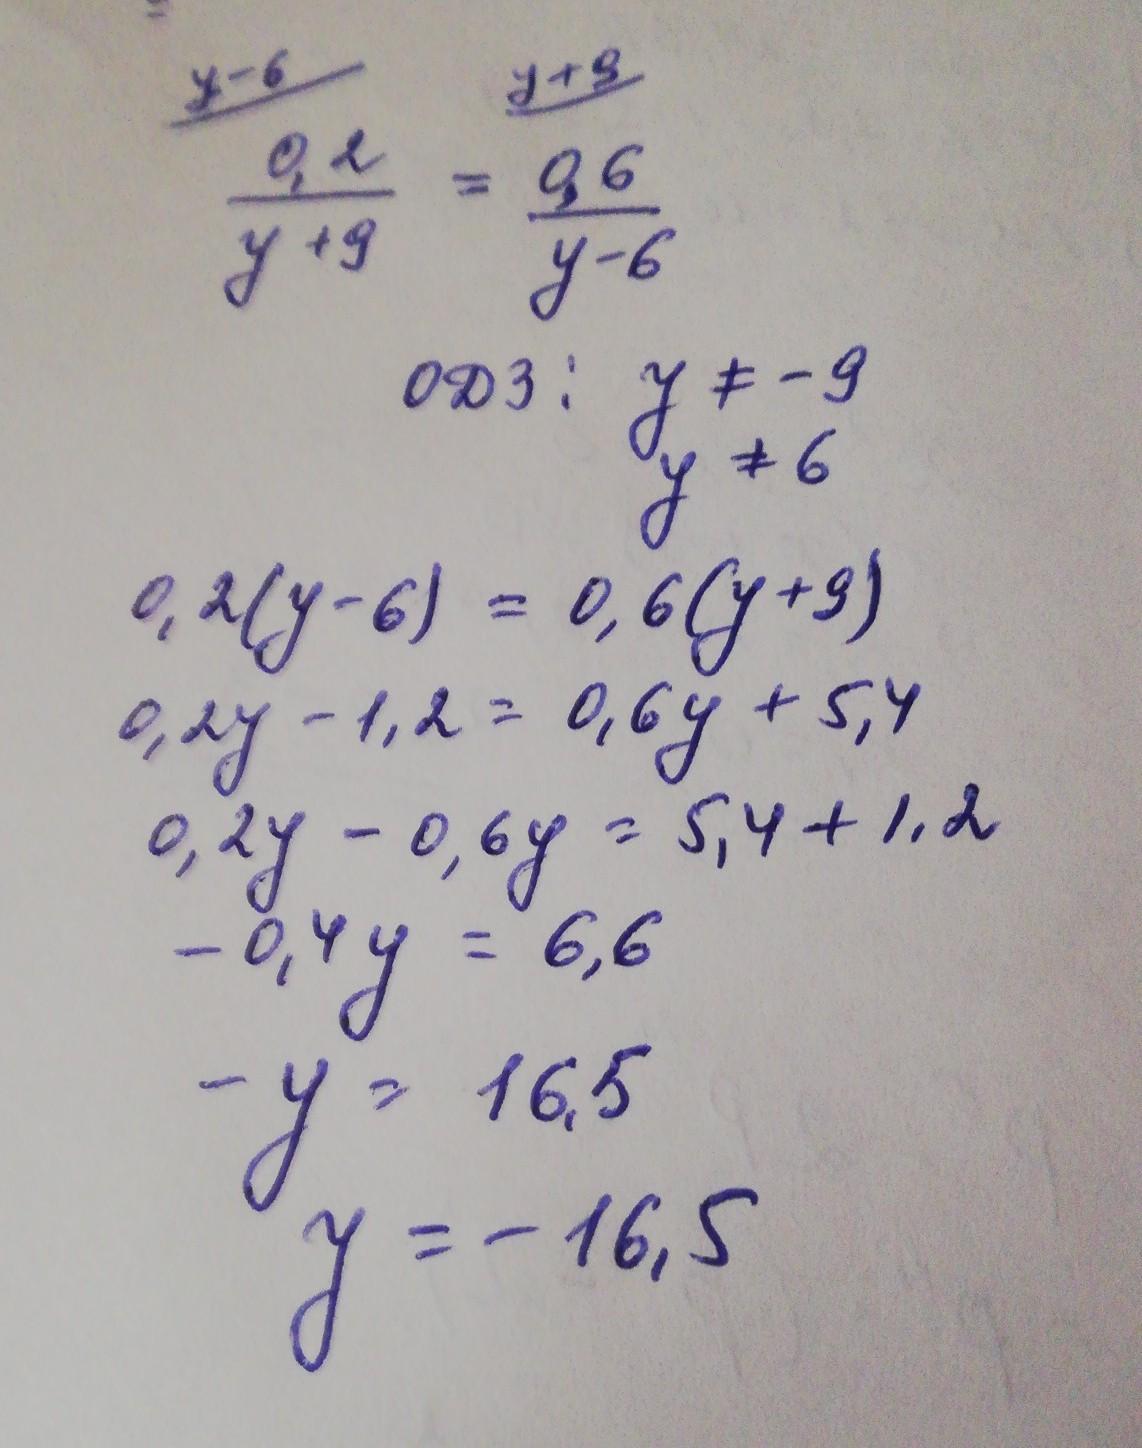 y-6 y+9
0,2 = 0,6
y+9 y-6
ОДЗ: y ≠ -9
y ≠ 6
0,2(y-6) = 0,6(y+9)
0,2y - 1,2 = 0,6y + 5,4
0,2y - 0,6y = 5,4 + 1,2
-0,4y = 6,6
-y = 16,5
y = -16,5